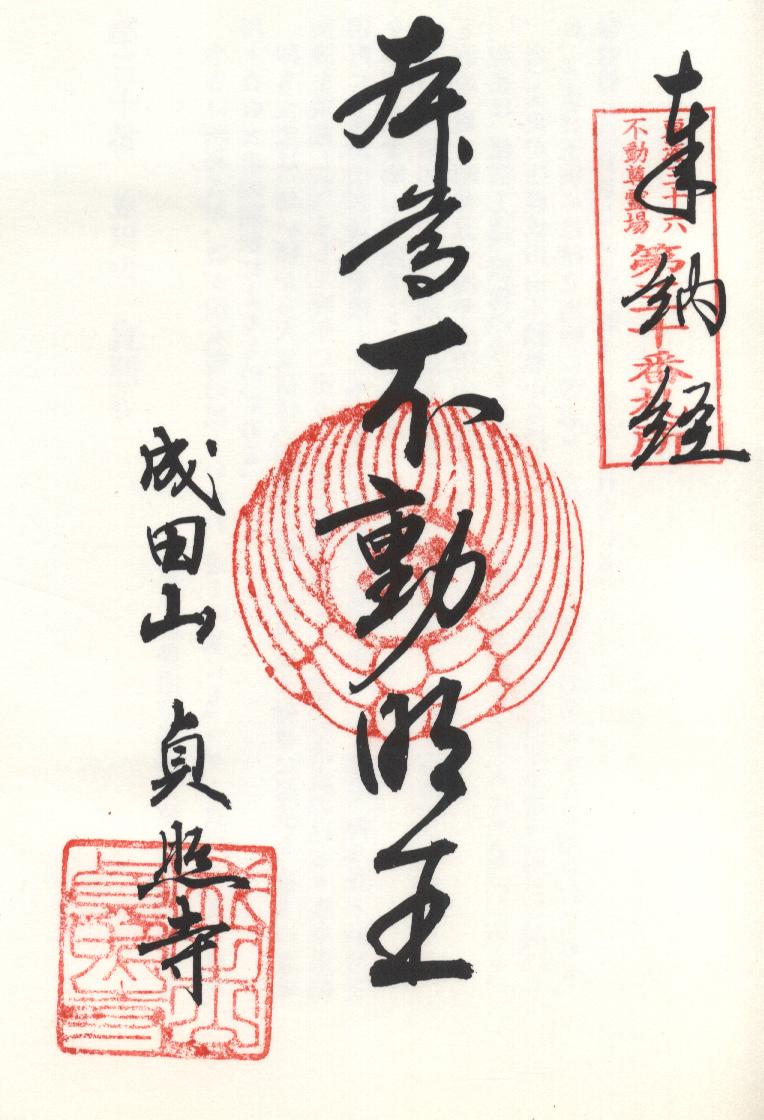 奉納経
東海三十六
不動尊霊場
第二十番札所
本尊不動明王
成田山 貞照寺